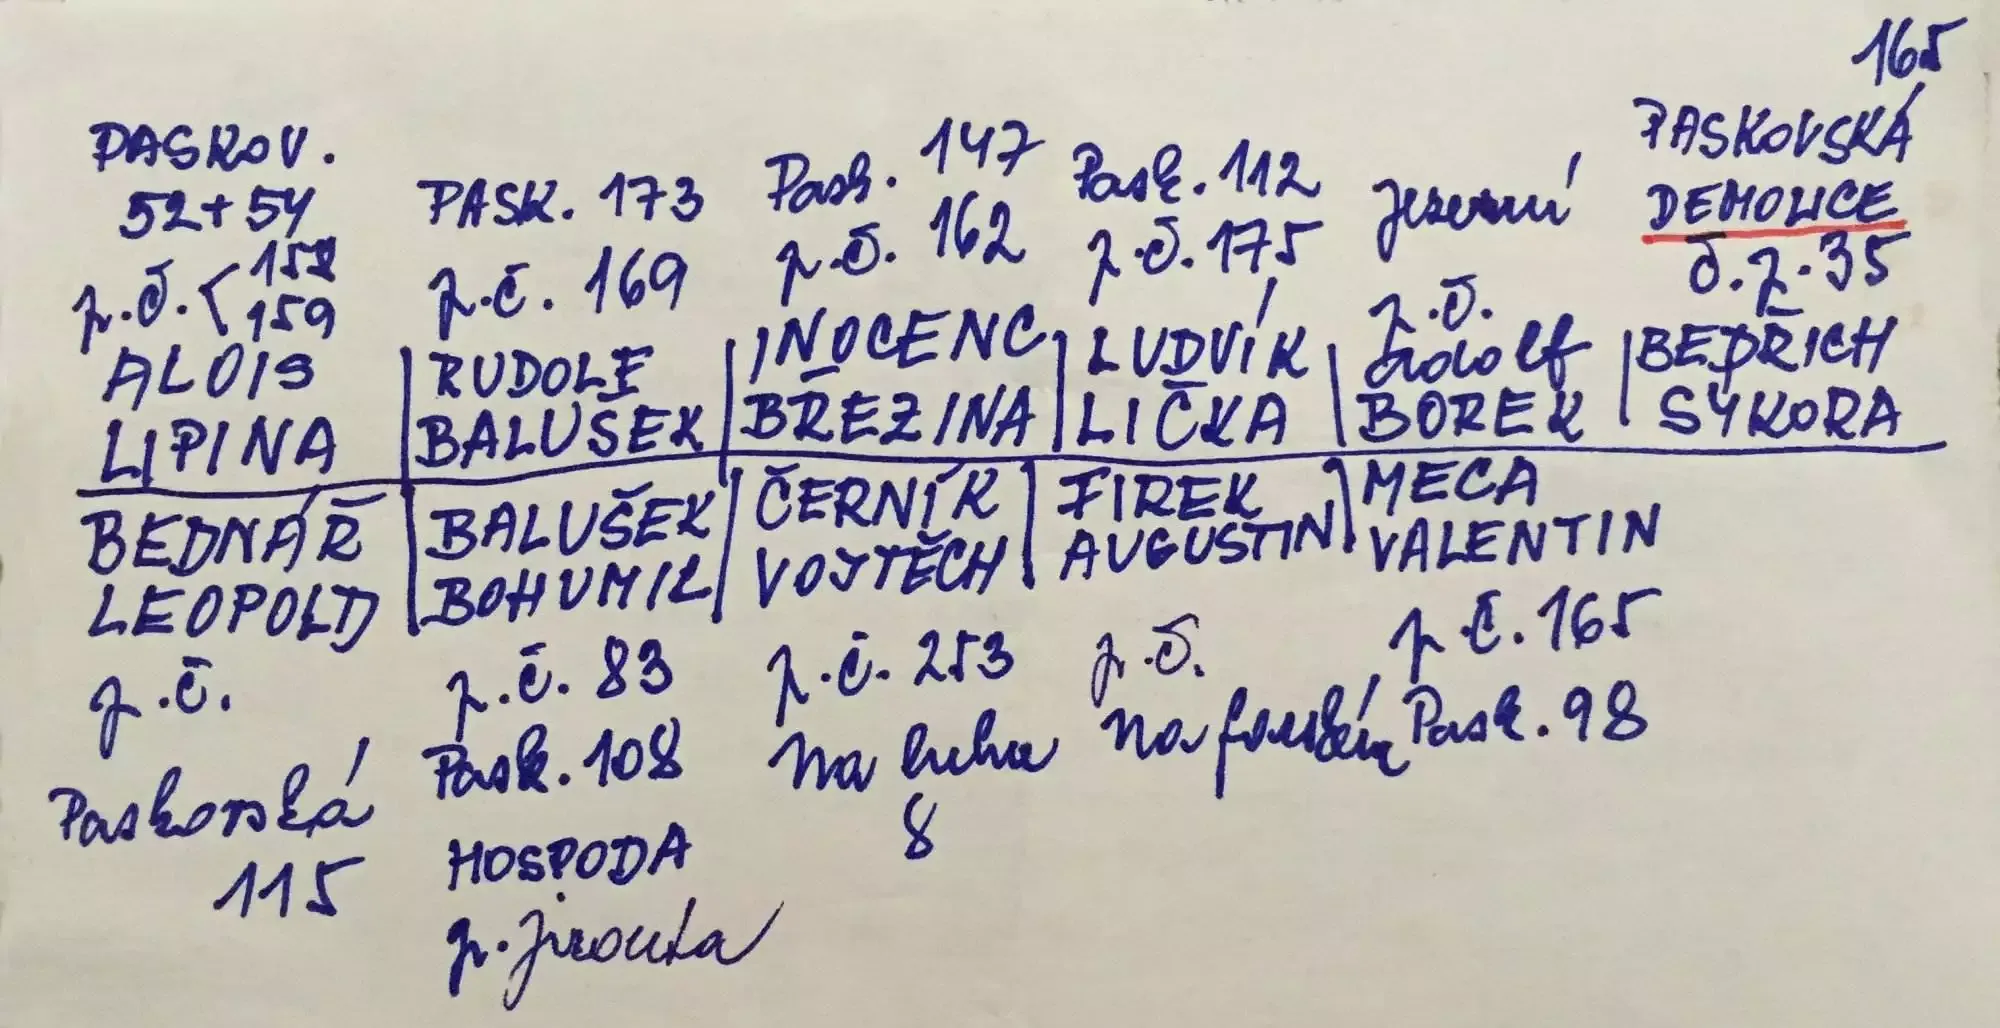 165
PASKOV.
52+54
p.č. < 158
159
ALOIS
LIPINA
PASK. 173
p.č. 169
RUDOLF
BALUŠEK
Pask. 147
p.č. 162
INOCENC
BŘEZINA
Pask. 112
p.č. 175
LUDVÍK
LIČKA
Jezerní
p.č.
Adolf
BOREK
PASKOVSKÁ
DEMOLICE
č.p. 35
BEDŘICH
SÝKORA
BEDNÁŘ
LEOPOLD
p.č.
Paskovská
115
BALUŠEK
BOHUMIL
p.č. 83
Pask. 108
HOSPODA
p. Jirouta
ČERNÍK
VOJTĚCH
p.č. 253
Na luha
8
FIREK
AUGUSTIN
p.č.
Na
MECA
VALENTIN
p.č. 165
Pask. 98